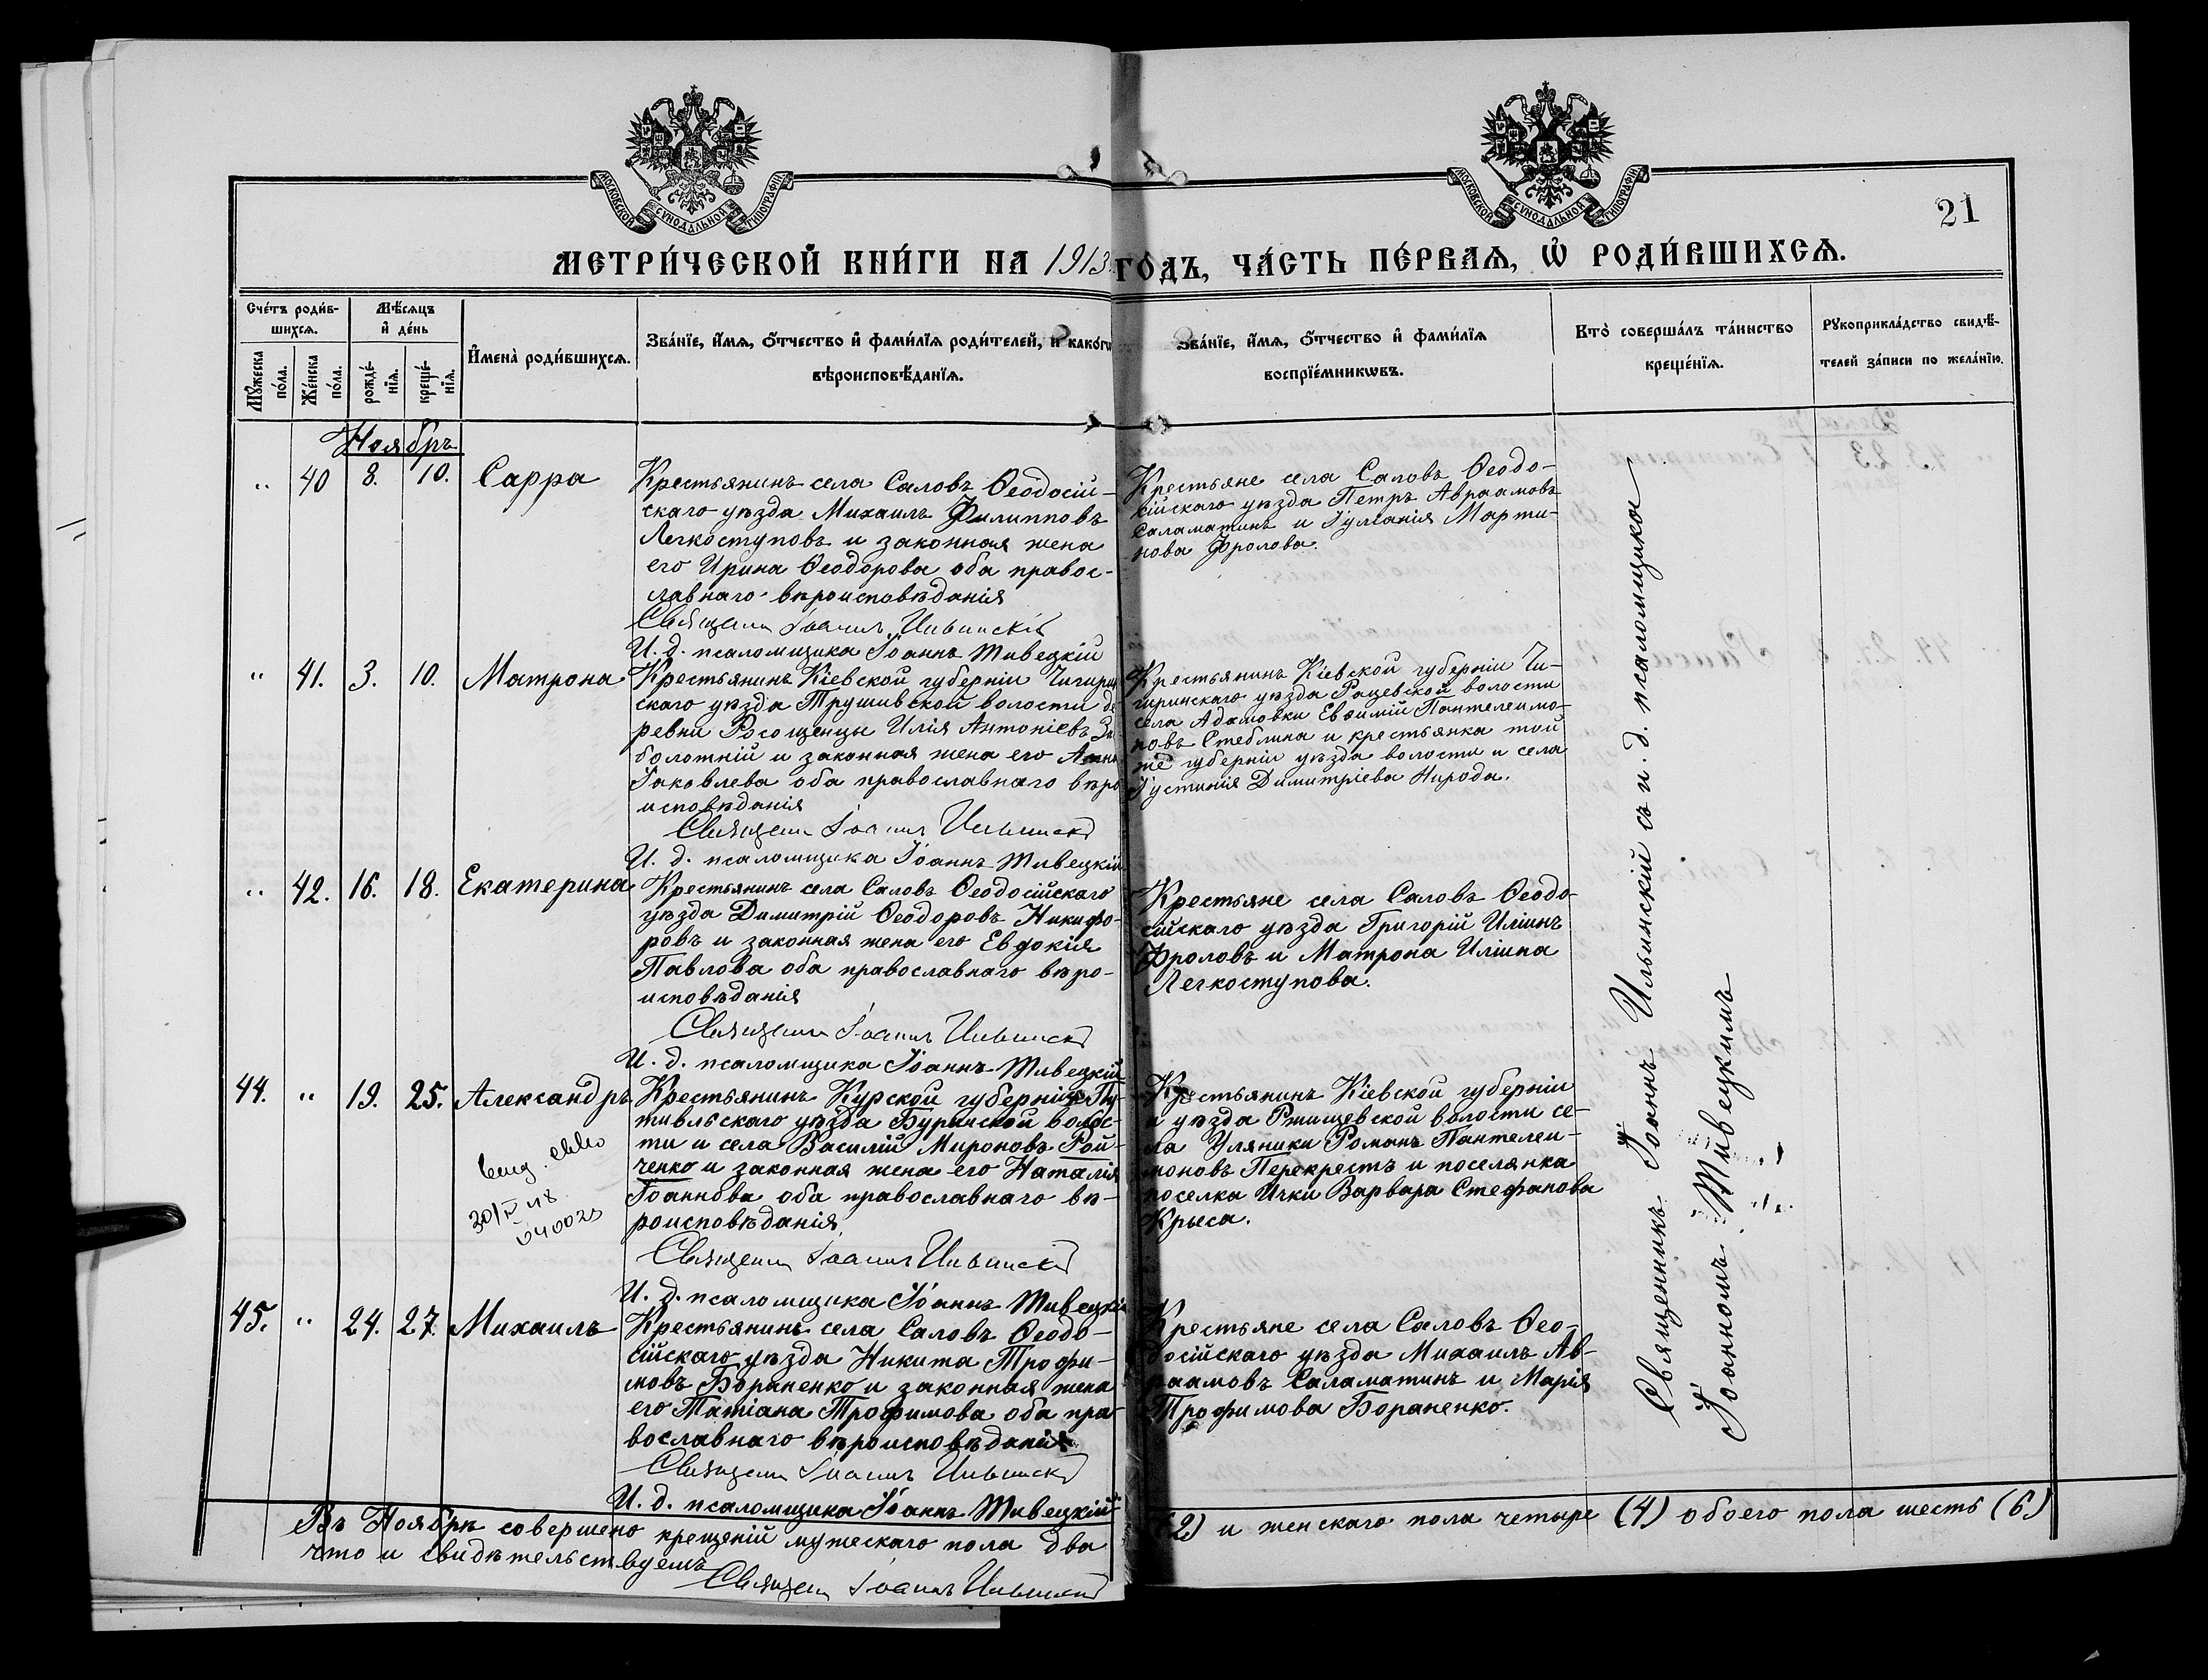 МОСКОВСКОЙ СѴНОДАЛЬНОЙ ТИПОГРАФІИ
МОСКОВСКОЙ СѴНОДАЛЬНОЙ ТИПОГРАФІИ
21
МЕТРИ́ЧЕСКОЙ КНИ́ГИ НА 1913 ГО́ДЪ, ЧА́СТЬ ПЕ́РВАѦ, Ѡ҆ РОДИ́ВШИХСѦ.
Сче́тъ роди́в-
шихсѧ.
Мꙋжеска по́ла.
Же́нска по́ла.
Мѣ́сѧцъ
и҆ де́нь
рожде́-
нїѧ.
креще́-
нїѧ.
И҆мена̀ роди́вшихсѧ.
Зва́нїе, и҆́мѧ, ѻ҆́тчество и҆ фами́лїѧ роди́телей, и҆ како́гѡ
вѣроисповѣ́данїѧ.
Зва́нїе, и҆́мѧ, ѻ҆́тчество и҆ фами́лїѧ
воспрїе́мникѡвъ.
Кто̀ соверша́лъ та́инство
креще́нїѧ.
Рꙋкоприкла́дство свидѣ́-
телей за́писи по жела́нїю.
Ноябрь
" 40 8. 10. Сарра
Крестьянинъ села Саловъ Ѳеодосій-
скаго уѣзда Михаилъ Филипповъ
Легкоступовъ и законная жена
его Ирина Ѳеодорова оба правос-
лавнаго вѣроисповѣданія
Священн Іоаннъ Ильинскій
И. д. псаломщика Іоаннъ Тивецкій
Крестьяне села Саловъ Ѳеодо-
сійскаго уѣзда Петръ Авраамовъ
Саламатинъ и Іуліанія Марти-
нова Фролова.
" 41. 3. 10. Матрона
Крестьянинъ Кіевской губерніи Чигирин
скаго уѣзда Трушивской волости де
ревни Росощенцы Илія Антоніевъ За
болотній и законная жена его Анна
Іаковлева оба православнаго вѣро
исповѣданія
Священн Іоаннъ Ильинскій
И. д. псаломщика Іоаннъ Тивецкій
Крестьянинъ Кіевской губерніи Чи-
гиринскаго уѣзда Рацевской волости
села Адамовки Евѳимій Пантелеимо-
новъ Стеблина и крестьянка той
же губерніи уѣзда волости и села
Іустинія Димитріева Нирода.
" 42. 16. 18. Екатерина
Крестьянинъ села Саловъ Ѳеодосійскаго
уѣзда Димитрій Ѳеодоровъ Никифо-
ровъ и законная жена его Евдокія
Павлова оба православнаго вѣро-
исповѣданія
Священн Іоаннъ Ильинскій
И. д. псаломщика Іоаннъ Тивецкій
Крестьяне села Саловъ Ѳеодо-
сійскаго уѣзда Григорій Иліинъ
Фроловъ и Матрона Иліина
Легкоступова.
44. " 19. 25. Александръ
30/IV 48
Крестьянинъ Курской губерніи Пу-
тивльскаго уѣзда Бурынской волос-
ти и села Василій Мироновъ Рой-
ченко и законная жена его Наталія
Іоаннова оба православнаго вѣ-
роисповѣданія
Священн Іоаннъ Ильинскій
И. д. псаломщика Іоаннъ Тивецкій
Крестьянинъ Кіевской губерніи
и уѣзда Ржищевской волости се-
ла Уляники Романъ Пантелеи-
моновъ Перекрестъ и поселянка
поселка Ички Варвара Стефанова
Крыса.
45. " 24. 27. Михаилъ
Крестьянинъ села Саловъ Ѳеодо-
сійскаго уѣзда Никита Трофи-
мовъ Бораненко и законная жена
его Татіана Трофимова оба пра-
вославнаго вѣроисповѣданія
Священн Іоаннъ Ильинскій
И. д. псаломщика Іоаннъ Тивецкій
Крестьяне села Саловъ Ѳео-
досійскаго уѣзда Михаилъ Ав-
раамовъ Саламатинъ и Марія
Трофимова Бораненко.
Священникъ Іоаннъ Ильинскій съ и. д. псаломщика
Іоанномъ Тивецкимъ
Въ Ноябрѣ совершено крещеній мужескаго пола два (2) и женскаго пола четыре (4) обоего пола шесть (6)
что и свидѣтельствуемъ
Священн Іоаннъ Ильинскій